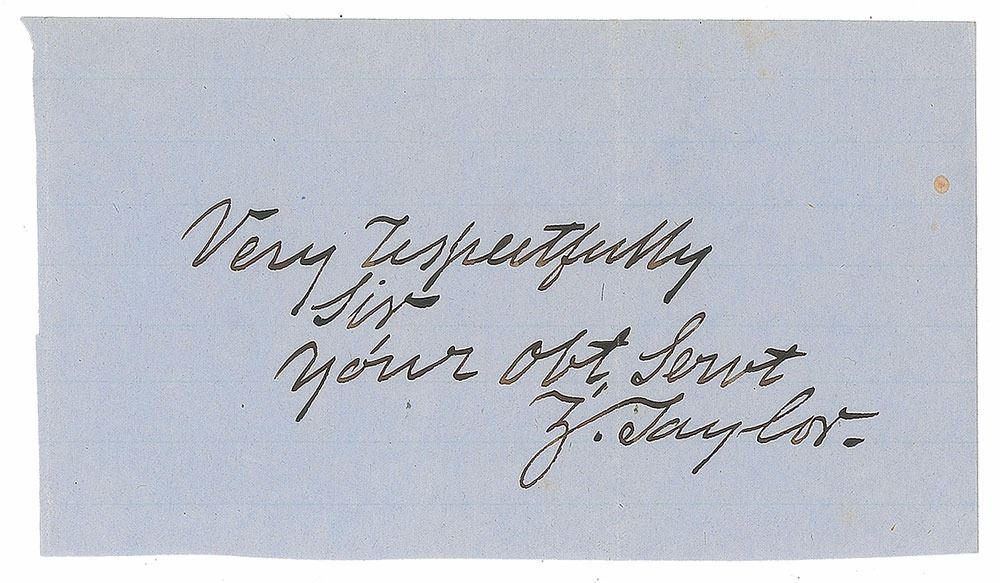 Very respectfully
Sir
Your Obt, Servt
Z. Taylor.